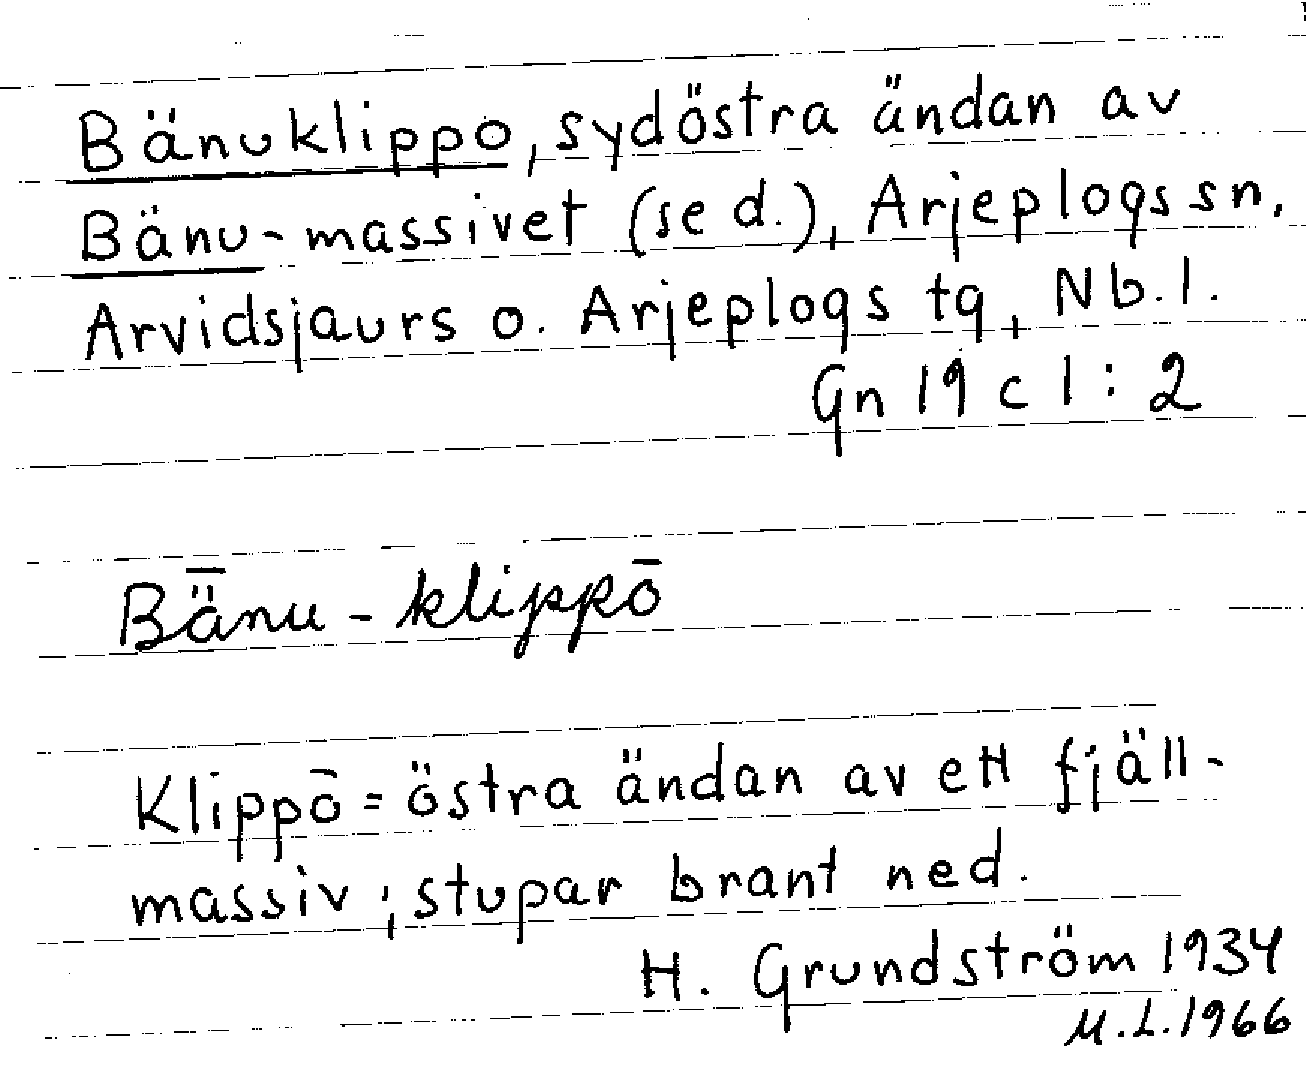 Bänuklippo, sydöstra ändan av
Bänu-massivet (se d.), Arjeplogs sn,
Arvidsjaurs o. Arjeplogs tg, Nb. l.
Gn 19 c 1 : 2
Bǟnu-klippō
Klippō = östra ändan av ett fjäll-
massiv; stupar brant ned.
H. Grundström 1934
M.L. 1966